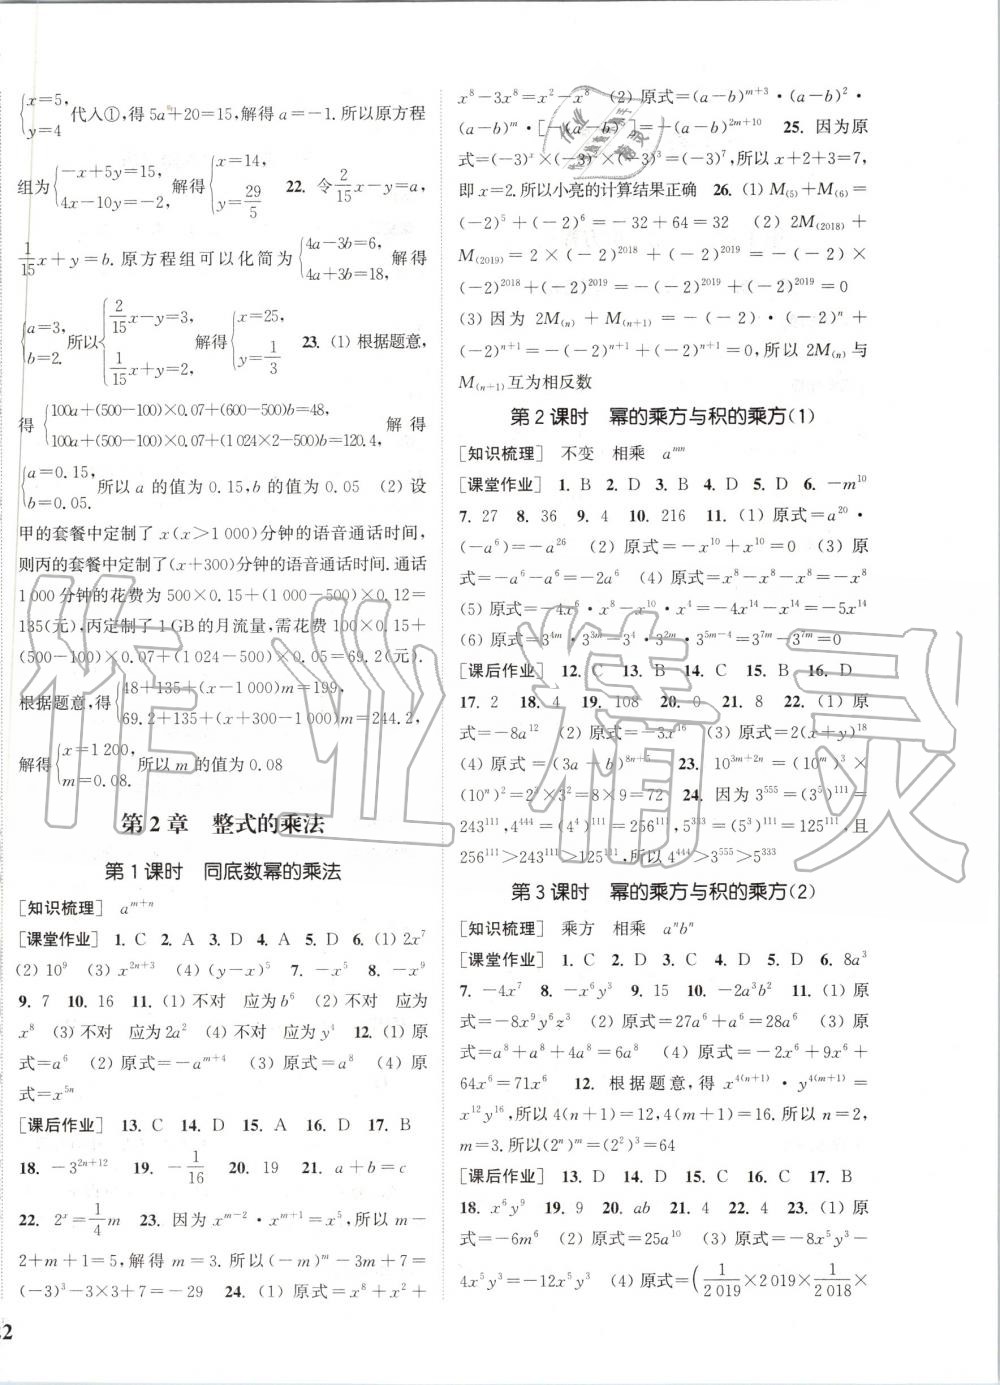 {x=5, y=4 代入①,得 5a+20=15,解得 a=-1. 所以原方程
组为{-x+5y=15, 4x-10y=-2, 解得{x=14, y=29/5  22. 令 2/15x-y=a,
1/15x+y=b. 原方程组可以化简为{4a-3b=6, 4a+3b=18, 解得
{a=3, b=2. 所以{2/15x-y=3, 1/15x+y=2, 解得{x=25, y=1/3  23. (1) 根据题意,
得{100a+(500-100)×0.07+(600-500)b=48, 100a+(500-100)×0.07+(1 024×2-500)b=120.4, 解得
{a=0.15, b=0.05. 所以 a 的值为 0.15,b 的值为 0.05  (2) 设
甲的套餐中定制了 x(x>1 000)分钟的语音通话时间,
则丙的套餐中定制了(x+300)分钟的语音通话时间. 通话
1 000 分钟的花费为 500×0.15+(1 000-500)×0.12=
135(元),丙定制了 1 GB 的月流量,需花费 100×0.15+
(500-100)×0.07+(1 024-500)×0.05=69.2(元).
根据题意,得{48+135+(x-1 000)m=199, 69.2+135+(x+300-1 000)m=244.2,
解得{x=1 200, m=0.08. 所以 m 的值为 0.08
第 2 章 整式的乘法
第 1 课时 同底数幂的乘法
[知识梳理] a^{m+n}
[课堂作业] 1. C 2. A 3. D 4. A 5. D 6. (1) 2x⁷
(2) 10⁹ (3) x^{2n+3} (4) (y-x)⁵ 7. -x⁵ 8. -x⁹
9. 7 10. 16 11. (1) 不对 应为 b⁶ (2) 不对 应为
x⁸ (3) 不对 应为 2a² (4) 不对 应为 y⁴ 12. (1) 原
式=a⁶ (2) 原式=-a^{m+4} (3) 原式=a⁸ (4) 原
式=x^{5n}
[课后作业] 13. C 14. D 15. A 16. D 17. B
18. -3^{2n+12} 19. -1/16 20. 19 21. a+b=c
22. 2ˣ=1/4m 23. 因为 x^{m-2}·x^{m+1}=x⁵,所以 m-
2+m+1=5,解得 m=3. 所以(-m)^m-3m+7=
(-3)³-3×3+7=-29 24. (1) 原式=x⁸+x²+
22
x⁸-3x⁸=x²-x⁸ (2) 原式=(a-b)^{m+3}·(a-b)²·
(a-b)^m·[-(a-b)⁵]=-(a-b)^{2m+10} 25. 因为原
式=(-3)ˣ×(-3)²×(-3)³=(-3)⁷,所以 x+2+3=7,
即 x=2. 所以小亮的计算结果正确 26. (1) M₍₅₎+M₍₆₎=
(-2)⁵+(-2)⁶=-32+64=32 (2) 2M₍₂₀₁₈₎+
M₍₂₀₁₉₎=2×(-2)²⁰¹⁸+(-2)²⁰¹⁹=-(-2)×
(-2)²⁰¹⁸+(-2)²⁰¹⁹=-(-2)²⁰¹⁹+(-2)²⁰¹⁹=0
(3) 因为 2M₍ₙ₎+M₍ₙ₊₁₎=-(-2)·(-2)ⁿ+
(-2)ⁿ⁺¹=-(-2)ⁿ⁺¹+(-2)ⁿ⁺¹=0,所以 2M₍ₙ₎与
M₍ₙ₊₁₎互为相反数
第 2 课时 幂的乘方与积的乘方(1)
[知识梳理] 不变 相乘 a^{mn}
[课堂作业] 1. B 2. D 3. B 4. D 5. D 6. -m¹⁰
7. 27 8. 36 9. 4 10. 216 11. (1) 原式=a²⁰·
(-a⁶)=-a²⁶ (2) 原式=-x¹⁰+x¹⁰=0 (3) 原
式=-a⁶-a⁶=-2a⁶ (4) 原式=x⁸-x⁸-x⁸=-x⁸
(5) 原式=-4x⁶·x⁸-x¹⁰·x⁴=-4x¹⁴-x¹⁴=-5x¹⁴
(6) 原式=3^{4m}·3^{3m}-3⁴·3^{2m}·3^{5m-4}=3^{7m}-3^{7m}=0
[课后作业] 12. C 13. B 14. C 15. B 16. D
17. 2 18. 4 19. 108 20. 0 21. 8 22. (1) 原式
=-8a¹² (2) 原式=-3x¹⁶ (3) 原式=2(x+y)¹⁸
(4) 原式=(3a-b)^{8n+5} 23. 10^{3m+2n}=(10^m)³×
(10ⁿ)²=2³×3²=8×9=72 24. 因为 3⁵⁵⁵=(3⁵)¹¹¹=
243¹¹¹,4⁴⁴⁴=(4⁴)¹¹¹=256¹¹¹,5³³³=(5³)¹¹¹=125¹¹¹,且
256¹¹¹>243¹¹¹>125¹¹¹,所以 4⁴⁴⁴>3⁵⁵⁵>5³³³
第 3 课时 幂的乘方与积的乘方(2)
[知识梳理] 乘方 相乘 aⁿbⁿ
[课堂作业] 1. C 2. D 3. A 4. D 5. D 6. 8a³
7. -4x⁷ 8. -x⁶y³ 9. 15 10. -2a³b² 11. (1) 原
式=-8x⁹y⁶z³ (2) 原式=27a⁶+a⁶=28a⁶ (3) 原
式=a⁸+a⁸+4a⁸=6a⁸ (4) 原式=-2x⁶+9x⁶+
64x⁶=71x⁶ 12. 根据题意,得 x^{4(n+1)}·y^{4(m+1)}=
x¹²y¹⁶,所以 4(n+1)=12,4(m+1)=16. 所以 n=2,
m=3. 所以(2ⁿ)^m=(2²)³=64
[课后作业] 13. D 14. D 15. C 16. C 17. B
18. x⁶y⁹ 19. 9 20. ab 21. 4 22. 4 23. (1) 原
式=-6m⁶ (2) 原式=25a¹⁰ (3) 原式=-8x⁵y³-
4x⁵y³=-12x⁵y³ (4) 原式=(1/2 019×2 019×1/2 018×
作业精灵